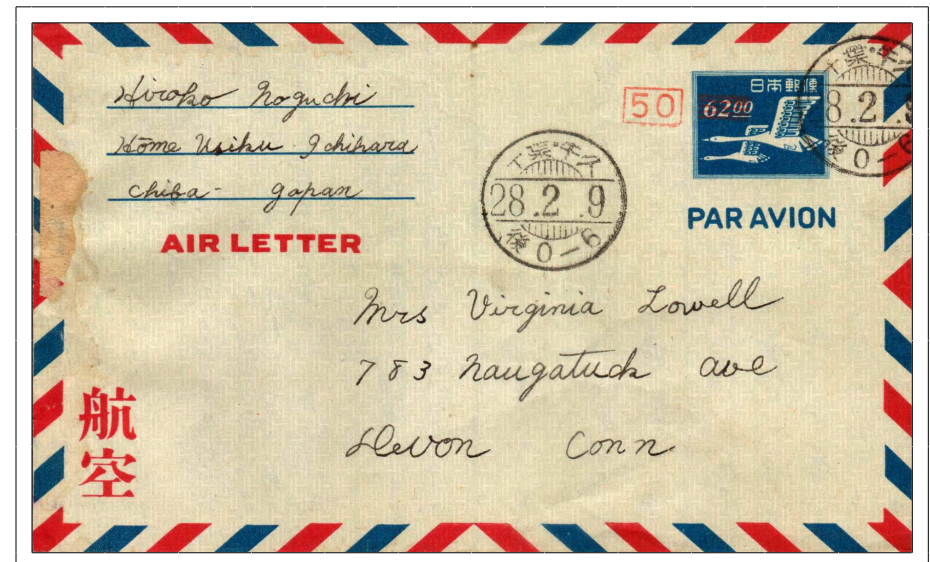 Hiroko Noguchi
Home Usiku Ichihara
Chiba - Japan
AIR LETTER
50
日本郵便
6200
PAR AVION
千葉・牛久
28.2.9
後0-6
千葉・牛久
8.2.9
後0-6
Mrs Virginia Lowell
783 Naugatuck ave
Devon Conn
航空